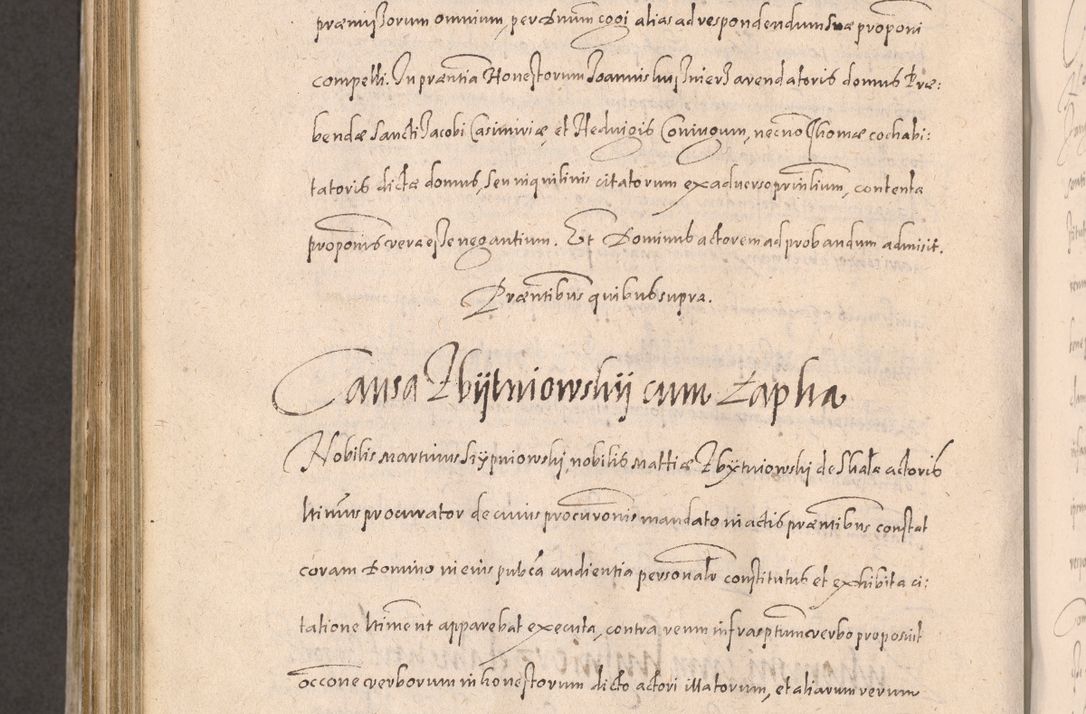 præmissorum omnium, per dnum cogi alias ad respondendum suæ proponi
compelli. In præntia Honestorum Joannis kusznierz arendatoris domus Præ:
bendæ Sancti Jacobi Casimiriæ et Heduigis Coniugum, necno Thomæ cochabi:
tatoris dictæ domus, seu inquilinis citatorum ex aduerso prinlium, contenta
proponis vera esse negantium. Et Dominus actorem ad probandum admisit.
Præntibus quibus supra.
Causa Zbÿtniowskÿ cum Łapka
Nobilis Martinus Sczÿpniowskj, nobilis Matthiæ Zbÿtniowskj de Skala actoris
ltimus procurator de cuius procuronis mandato in actis præntibus constat
coram Domino in eius pubca audientia personalr constitutus et exhibita ci:
tatione ltime nt apparebat executa, contra reum infrasptum verbo proposuit
occone verborum inhonestorum dicto actori illatorum, et aliarum rerum